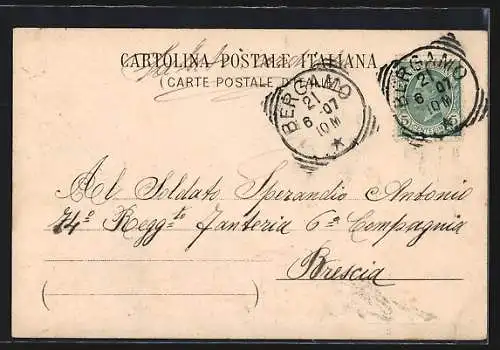 CARTOLINA POSTALE ITALIANA
(CARTE POSTALE D'ITALIE)
BERGAMO
21
6 07
10 M
BERGAMO
21
6 07
10 M
Al Soldato Sperandio Antonio
74º Regg.to Fanteria 6ª Compagnia
Brescia